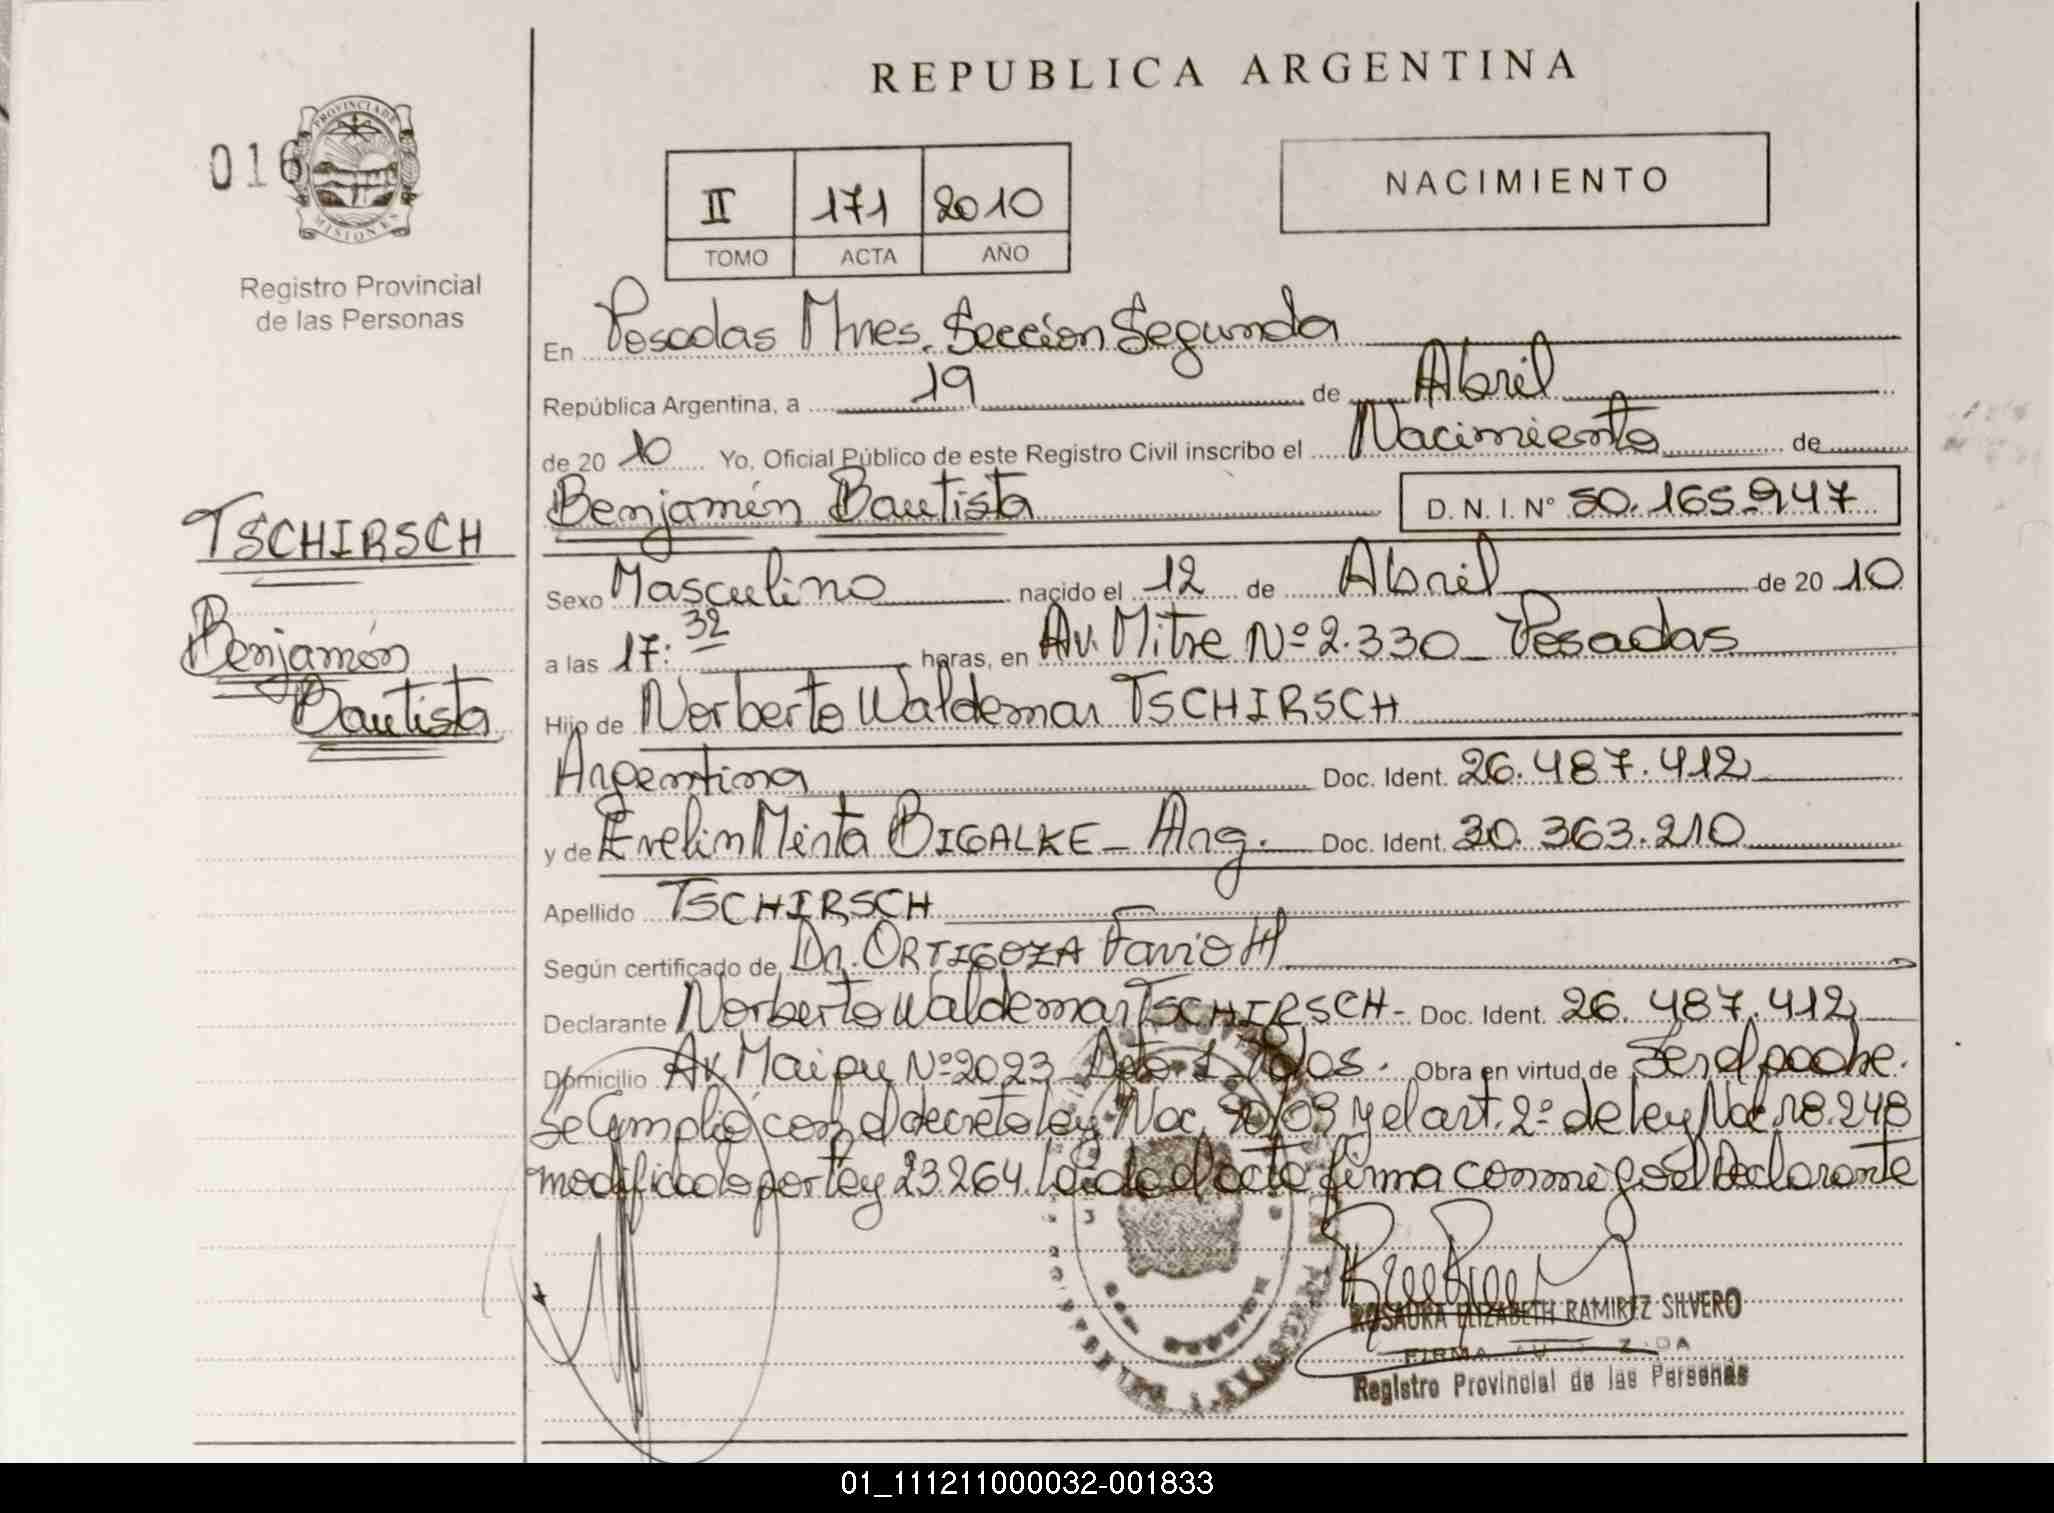 REPUBLICA ARGENTINA
016
PROVINCIA DE
MISIONES
Registro Provincial
de las Personas
II 171 2010
TOMO ACTA AÑO
NACIMIENTO
En Posadas Mnes. Sección Segunda
República Argentina, a 19 de Abril
de 20 10 Yo, Oficial Público de este Registro Civil inscribo el Nacimiento de
Benjamín Bautista D. N. I. Nº 50.165.947
TSCHIRSCH
Benjamín
Bautista
Sexo Masculino nacido el 12 de Abril de 20 10
a las 17:32 horas, en Av. Mitre Nº 2.330 - Posadas
Hijo de Norberto Waldemar TSCHIRSCH
Argentina Doc. Ident. 26.487.412
y de Evelin Mirta BIGALKE - Arg. Doc. Ident. 30.363.210
Apellido TSCHIRSCH
Según certificado de Dr. ORTIGOZA Favio H
Declarante Norberto Waldemar TSCHIRSCH - Doc. Ident. 26.487.412
Domicilio Av. Maipu Nº 2023 Dpto 1 Pdos. Obra en virtud de Ser el padre.
Se Cumplió con el decreto ley Nac. /03 y el art. 2º de ley Nac. 18.248
modificado por ley 23264. Leída el acta firma conmigo el Declarante
ROSAURA ELIZABETH RAMIREZ SILVERO
FIRMA
Registro Provincial de las Personas
01_111211000032-001833